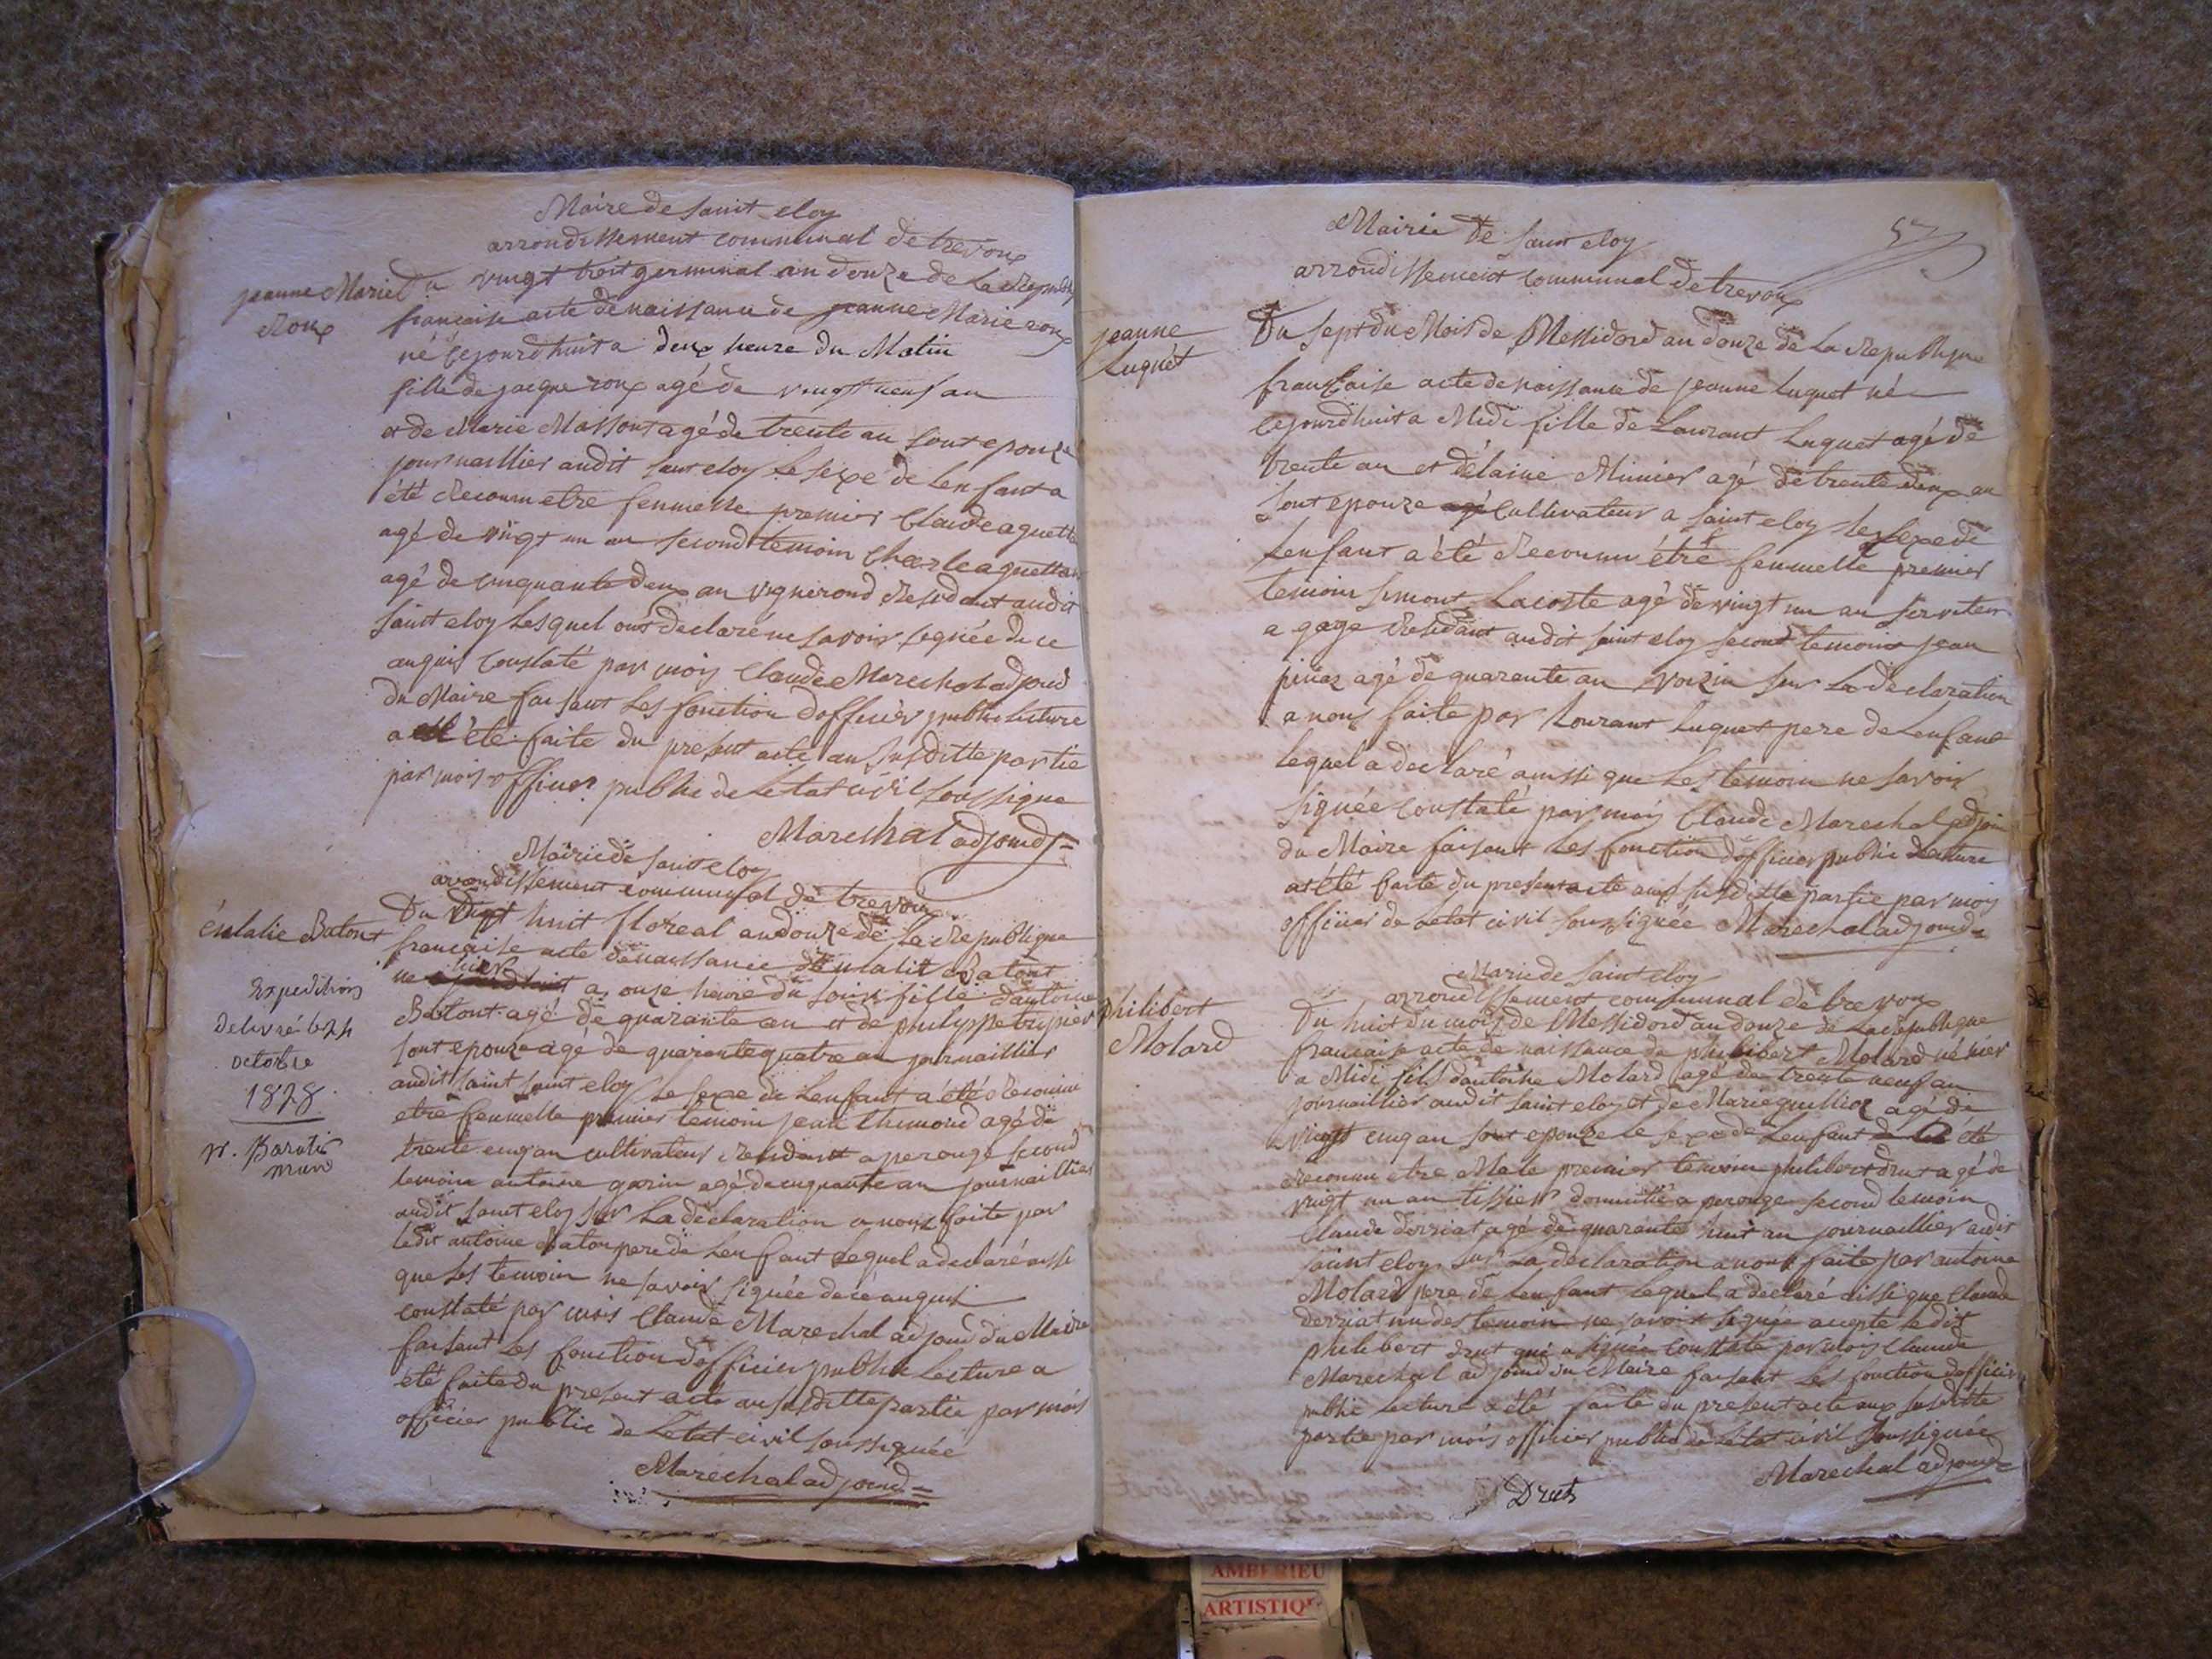 Maire de saint eloy
arrondissement communal de trevoux
jeanne Marie
Roux
Du vingt troit germinal an douze de La Republ
francaise acte de naissance de jeanne Marie roux
né cejourdhuit a deux heure du Matin
fille de jacque roux agé de vingt neuf an
et de Marie Massont agé de trente an sont epouze
journaillier audit saint eloy Le sexe de Lenfant a
été Reconnu etre femmelle premier Claude aguetta
agé de vingt un an second temoin Charle aguettan
agé de cinquante deux an vignerond Residant audit
saint eloy Lesquel ont declaré ne savoir segnée de ce
anquis constaté par mois Claude Marechal adjoind
du Maire faisant Les fonction dofficier public Lecture
a été faite du present acte au susditte partie
par mois officier public de Letat civil soussigne
Marechal adjoind
Mairie de saint eloy
arrondissement communal de trevoux
éulalie Batont
Expedition
delivré le 24
octobre
1828
Du vingt huit floreal an douze de La Republique
francaise acte de naissance deulalie Batont
né hier a onze heure du soir fille dantoine
Batont agé de quarante an et de philippe tripier
sont epouze agé de quarante quatre an journaillier
audit saint saint eloy Le sexe de Lenfant a été Reconnu
etre femmelle premier temoin jean thimond agé de
trente cinq an cultivateur Residant a perouge second
temoin antoine garin agé de cinquante an journaillier
audit saint eloy sur La declaration a nous faite par
Ledit antoine Baton pere de Lenfant Lequel a declaré aussi
que Les temoin ne savoir signée de ce anquis
constaté par mois Claude Marechal adjoind du Maire
faisant Les fonction dofficier public Lecture a
été faite du present acte au susditte partie par mois
officier public de Letat civil soussignée
Marechal adjoind
57
Mairie de saint eloy
arrondissement communal de trevoux
jeanne
Luquet
Du sept du Mois de Messidord an douze de La Republique
francaise acte de naissance de jeanne Luquet né
cejourdhuit a Midi fille de Laurant Luquet agé de
trente an et delaine Minier agé de trente deux an
sont epouze agé Cultivateur a saint eloy Le sexe de
Lenfant a été Reconnu être femmelle premier
temoin simont Lacoste agé de vingt un an serviteur
a gage Residant audit saint eloy second temoin jean
pinaz agé de quarante an voizin sur La declaration
a nous faite par Lourant Luquet pere de Lenfant
Lequel a declaré aussi que Les temoin ne savoir
signée constaté par mois Claude Marechal adjoin
du Maire faisant Les fonction dofficier public Lecture
a été faite du present acte aux susditte partie par mois
officier de Letat civil soussignée Marechal adjoind
Mairie de saint eloy
arrondissement communal de trevoux
philibert
Molard
Du huit du mois de Messidord an douze de La Republique
francaise acte de naissance de philibert Molard né hier
a Midi fils dantoine Molard agé de trente neuf an
journaillier audit saint eloy et de Marie quillier agé de
vingt cinq an sont epouze Le sexe de Lenfant a été
Reconnu etre Male premier temoin philibert drut agé de
vingt un an tissier domicillié a perouge second temoin
Claude derriat agé de quarante huit an journaillier audit
saint eloy sur La declaration a nous faite par antoine
Molard pere de Lenfant Lequel a declaré aissi que Claude
derriat un des temoin ne savoir signée acepté Ledit
philibert drut qui a signée constaté par mois Claude
Marechal adjoind du Maire faisant Les fonction dofficier
public Lecture a été faite du present acte aux susditte
partie par mois officier public de Létat civil soussignée
Marechal adjoind
Drut
AMBERIEU
ARTISTIQ